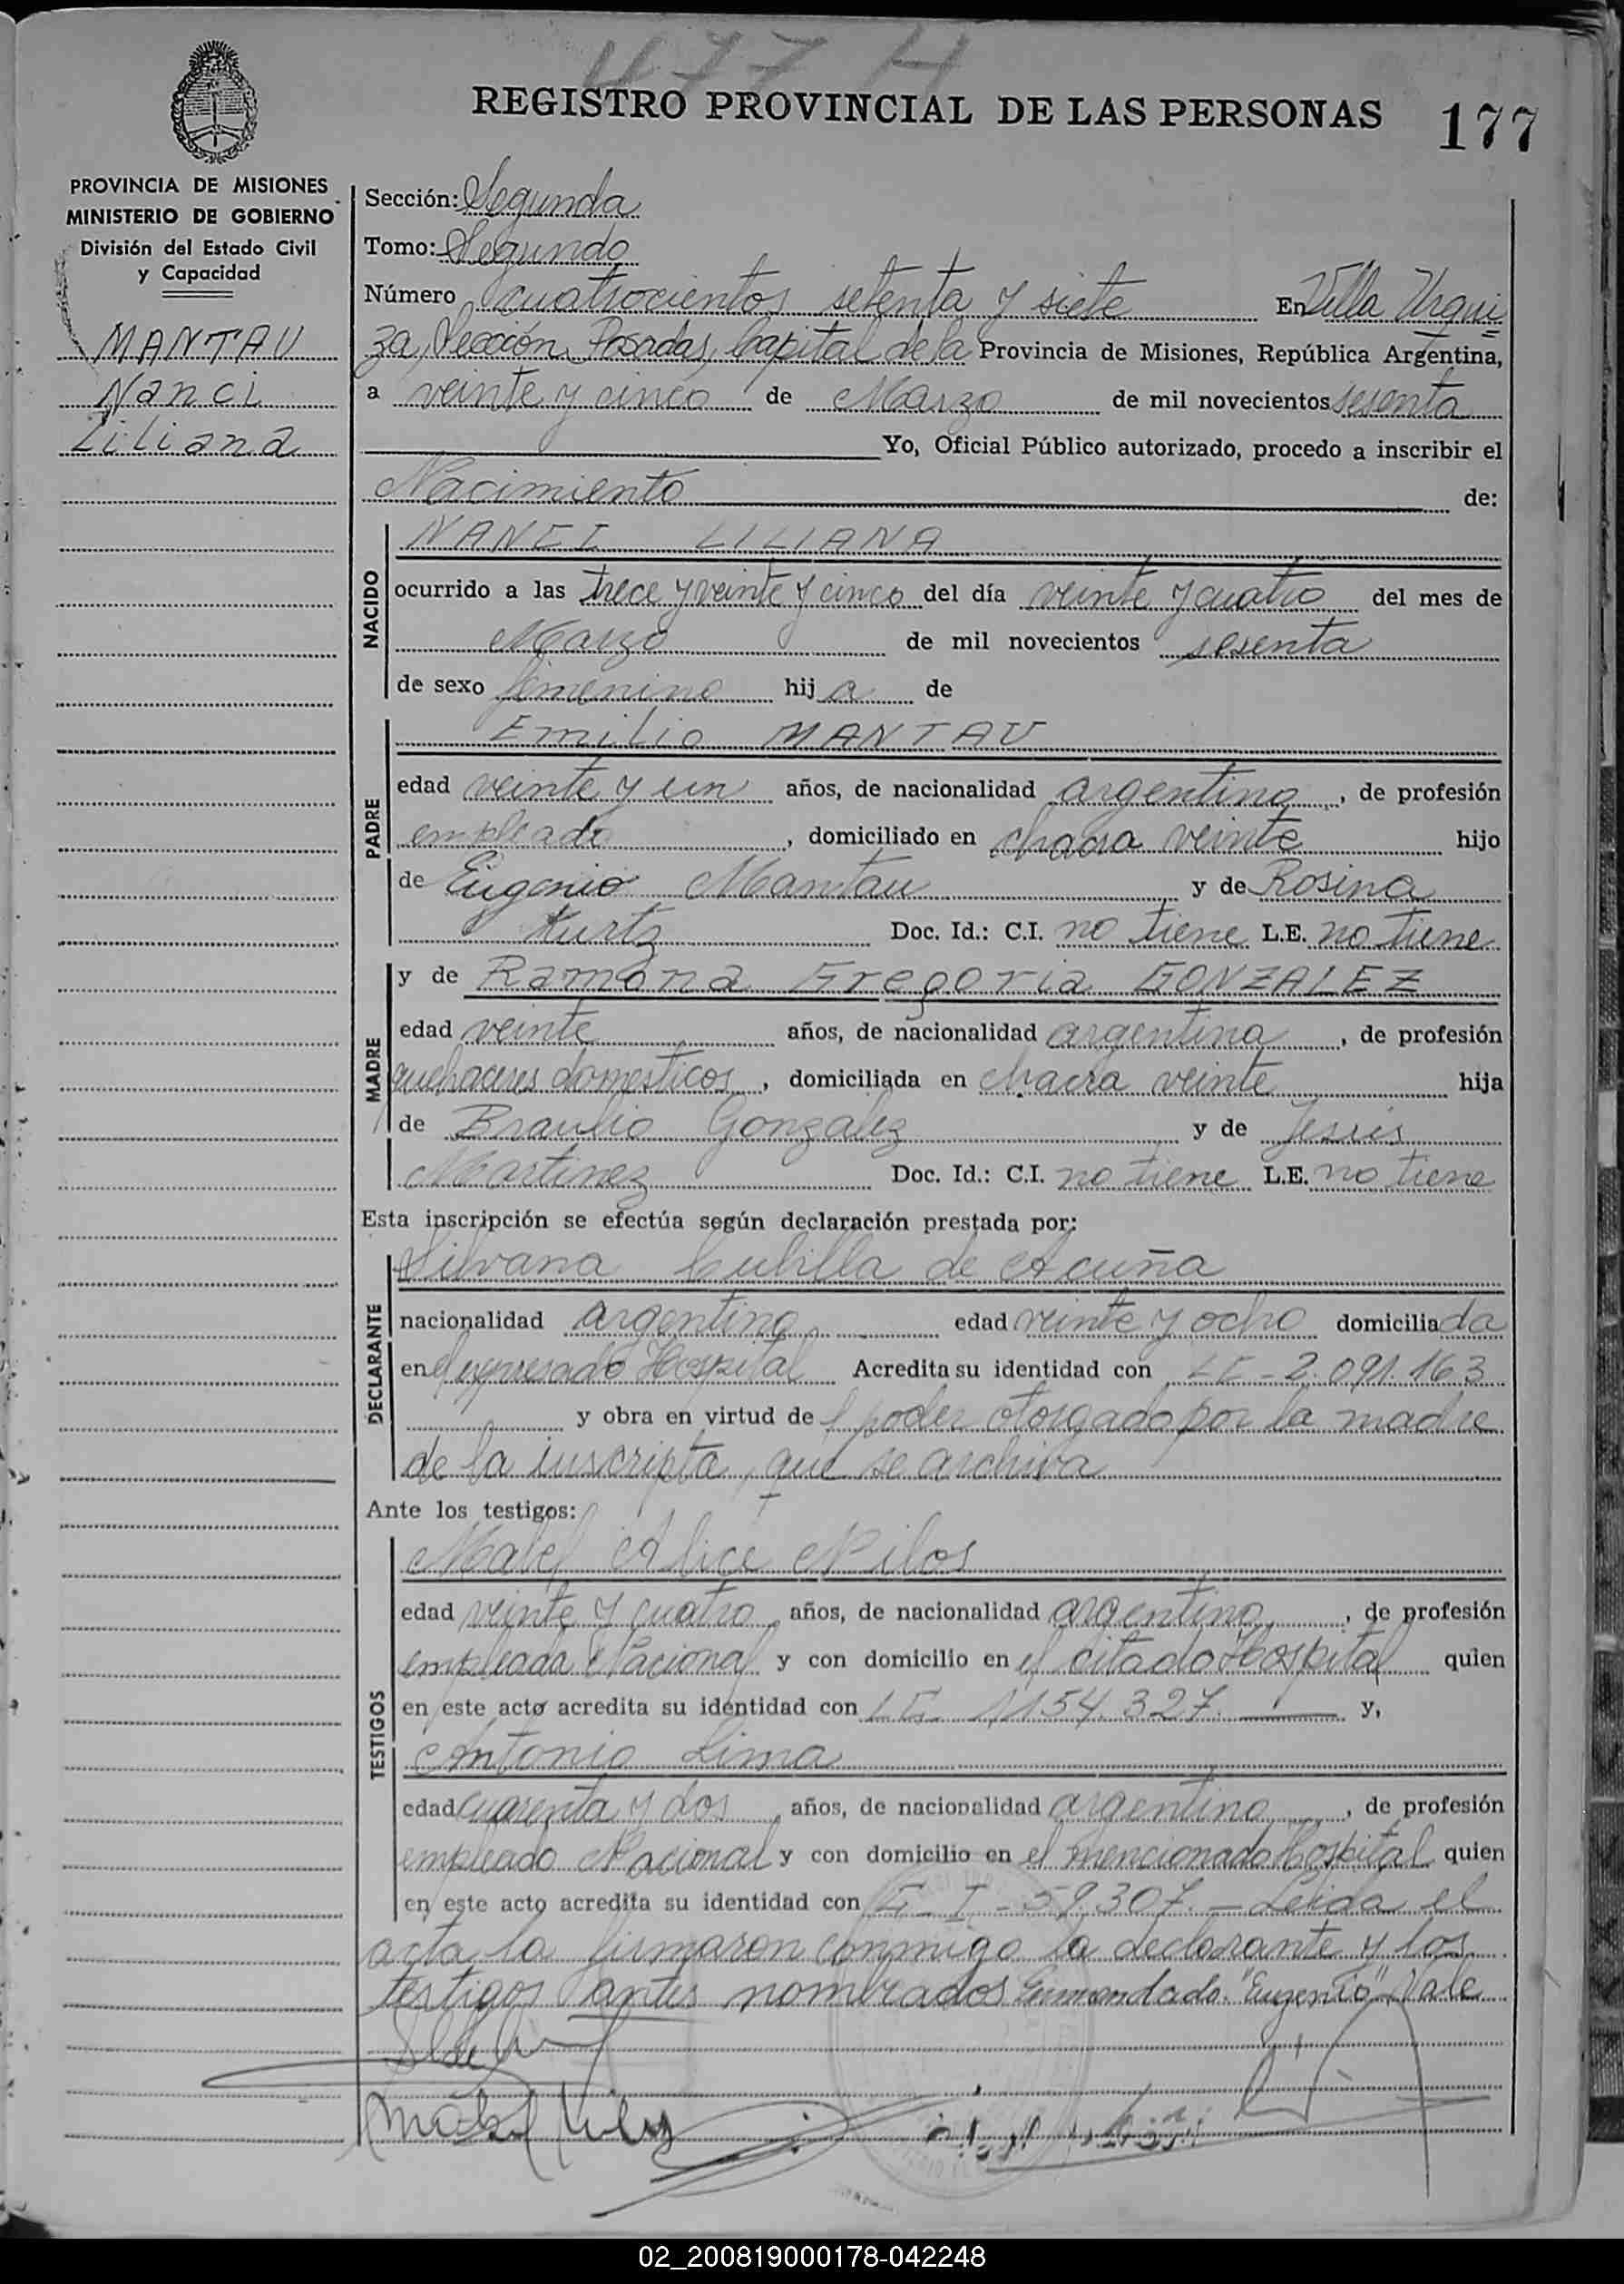 477 H
REGISTRO PROVINCIAL DE LAS PERSONAS 177
PROVINCIA DE MISIONES
MINISTERIO DE GOBIERNO
División del Estado Civil
y Capacidad
MANTAU
Nanci
Liliana
Sección: Segunda
Tomo: Segundo
Número cuatrocientos setenta y siete En Villa Urqui=
za, Sección Posadas, Capital de la Provincia de Misiones, República Argentina,
a veinte y cinco de Marzo de mil novecientos sesenta
Yo, Oficial Público autorizado, procedo a inscribir el
Nacimiento de:
NACIDO
NANCI LILIANA
ocurrido a las trece y veinte y cinco del día veinte y cuatro del mes de
Marzo de mil novecientos sesenta
de sexo femenino hija de
PADRE
Emilio MANTAU
edad veinte y un años, de nacionalidad argentino, de profesión
empleado, domiciliado en chacra veinte hijo
de Eugenio Mantau y de Rosina
Kurtz Doc. Id.: C.I. no tiene L.E. no tiene
MADRE
y de Ramona Gregoria GONZALEZ
edad veinte años, de nacionalidad argentina, de profesión
quehaceres domesticos, domiciliada en chacra veinte hija
de Braulio Gonzalez y de Jesús
Martinez Doc. Id.: C.I. no tiene L.E. no tiene
Esta inscripción se efectúa según declaración prestada por:
DECLARANTE
Silvana Cubilla de Acuña
nacionalidad argentina edad veinte y ocho domiciliada
en el expresado Hospital Acredita su identidad con LC - 2.091.163
y obra en virtud del poder otorgado por la madre
de la inscripta, que se archiva
Ante los testigos:
TESTIGOS
Mabel Alice Nilos
edad veinte y cuatro, años, de nacionalidad argentina, de profesión
empleada Nacional y con domicilio en el citado Hospital quien
en este acto acredita su identidad con LC 1154.327. y,
Antonio Lima
edad cuarenta y dos, años, de nacionalidad argentino, de profesión
empleado Nacional y con domicilio en el mencionado Hospital quien
en este acto acredita su identidad con C-I-59.307. - Leída el
acta la firmaron conmigo la declarante y los
testigos antes nombrados Enmendado: "Eugenio" Vale
Mabel Nilos
02_200819000178-042248